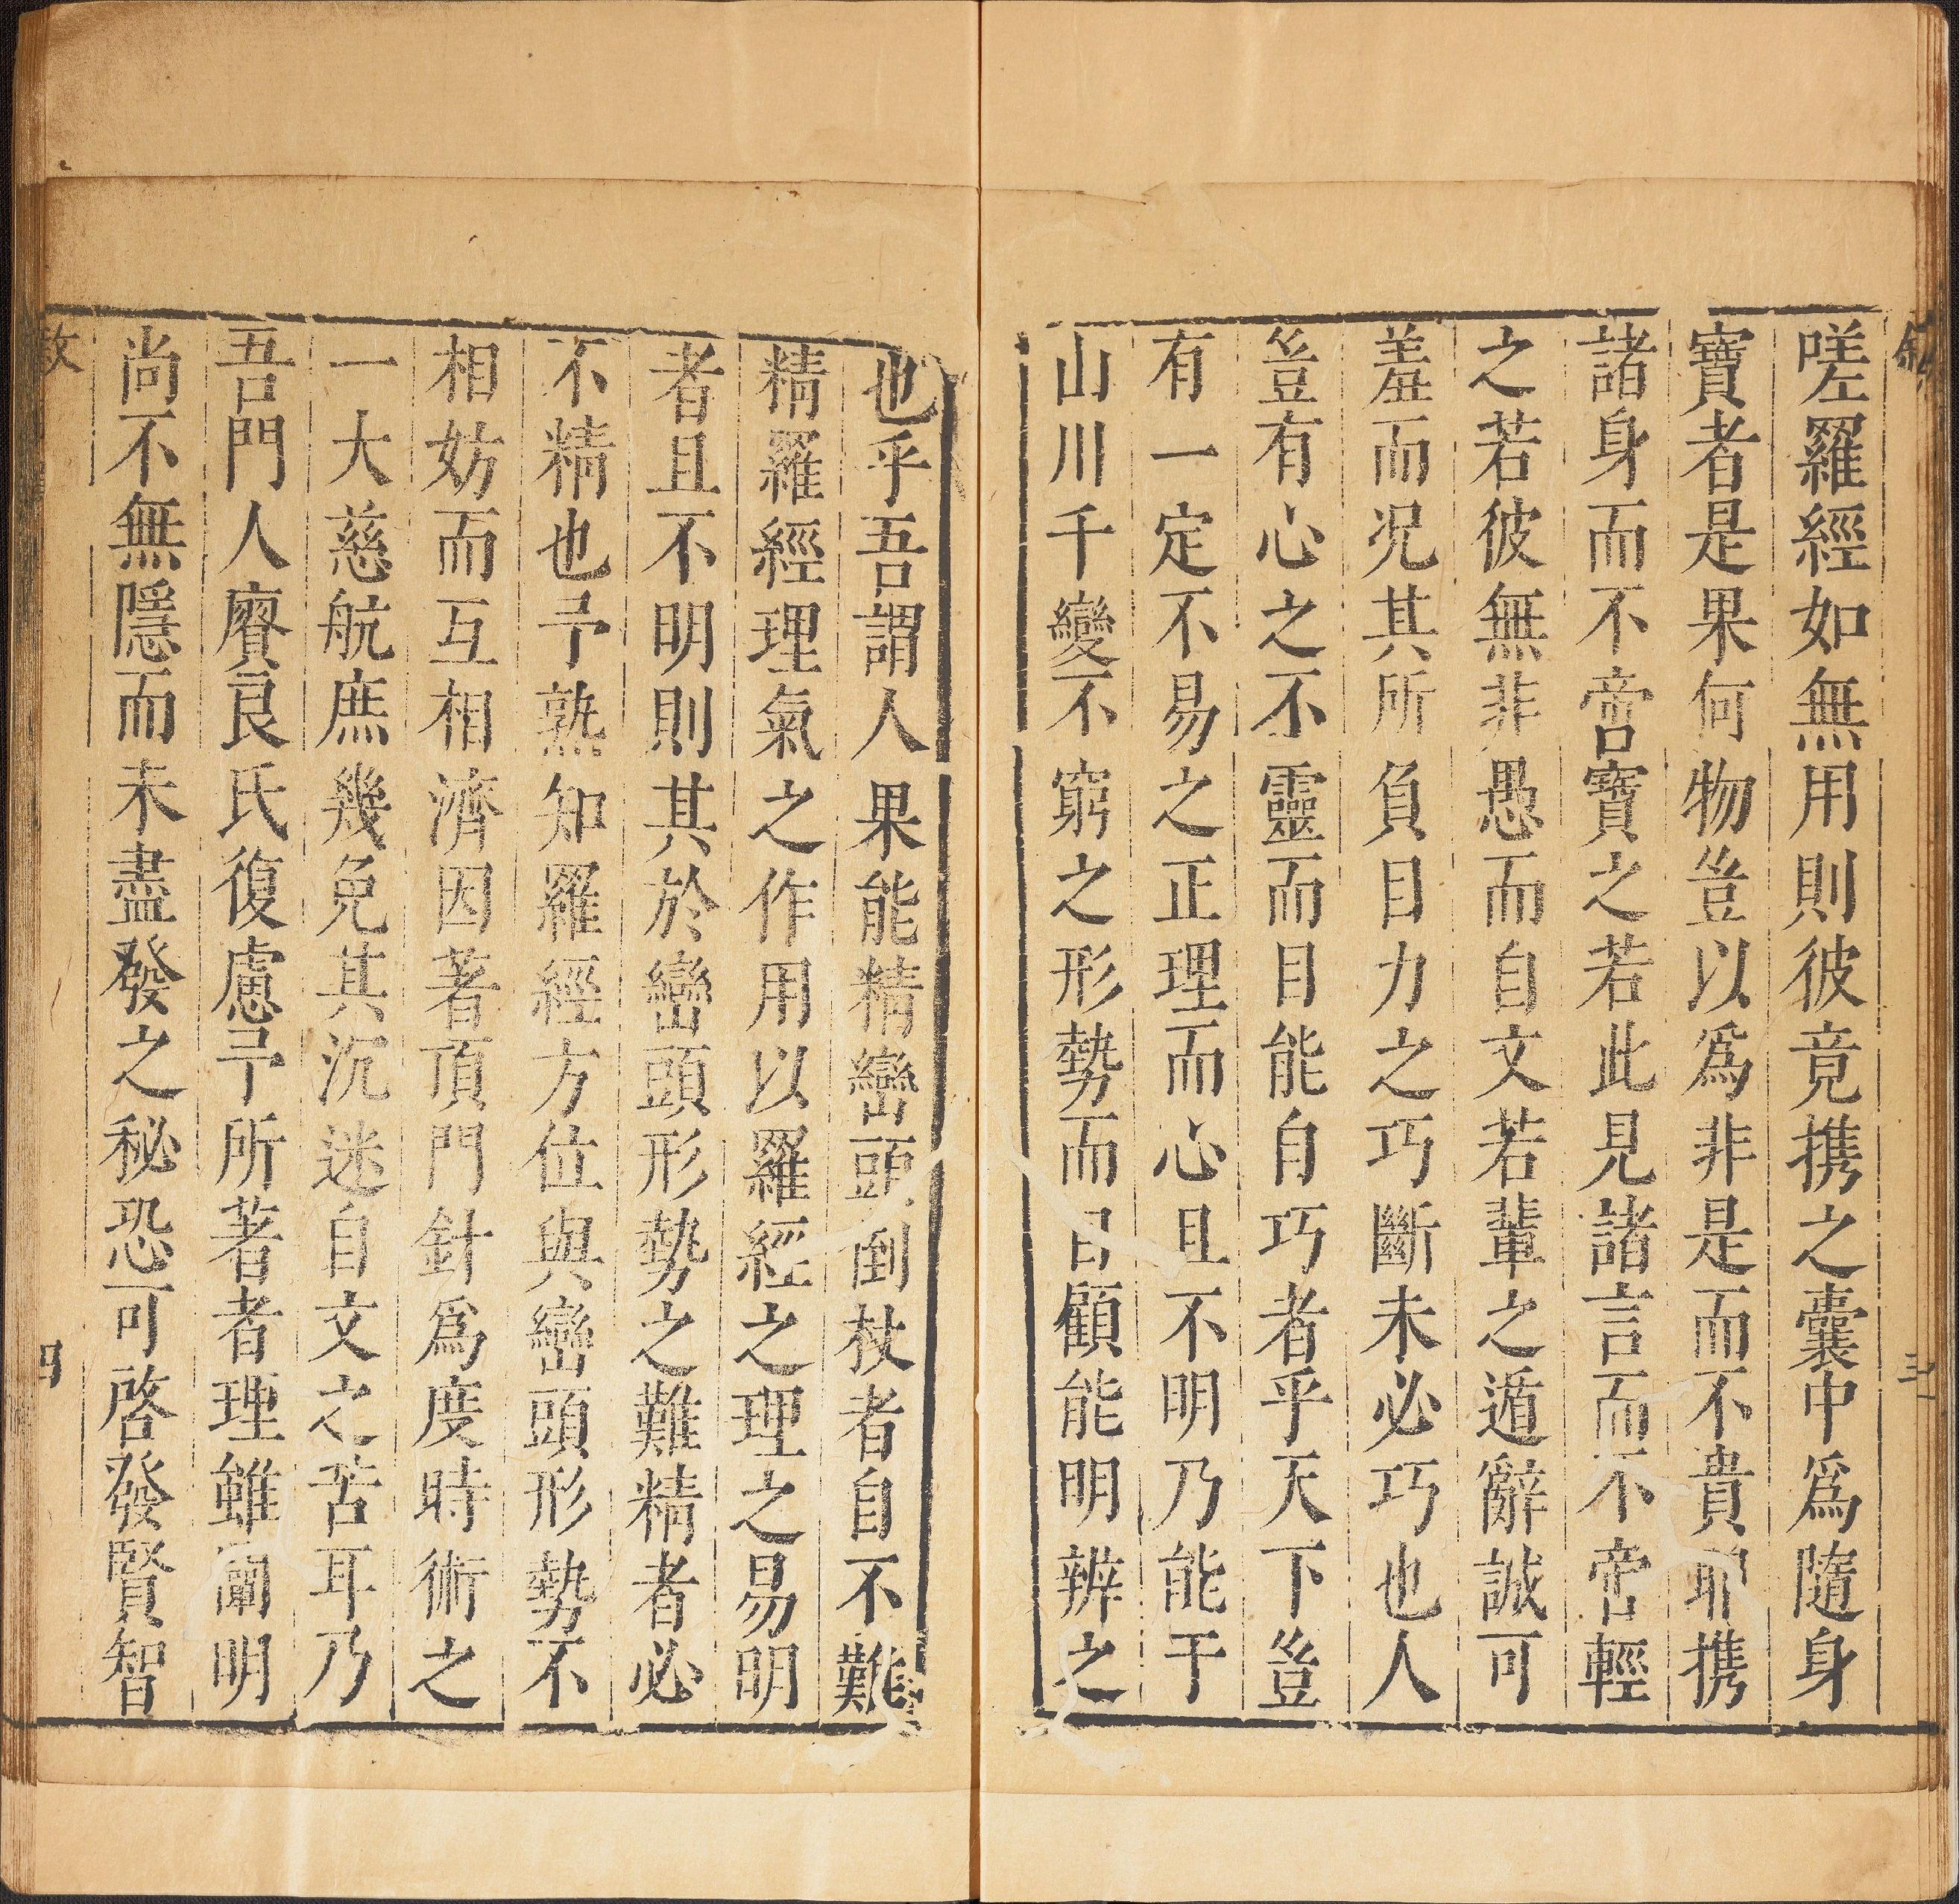 嗟羅經如無用則彼竟携之囊中爲隨身
寶者是果何物豈以爲非是而不貴耶携
諸身而不啻寶之若此見諸言而不啻輕
之若彼無非愚而自文若輩之遁辭誠可
羞而况其所負目力之巧斷未必巧也人
豈有心之不靈而目能自巧者乎天下豈
有一定不易之正理而心且不明乃能于
山川千變不窮之形勢而曰顧能明辨之
三
也乎吾謂人果能精巒頭倒杖者自不難
精羅經理氣之作用以羅經之理之易明
者且不明則其於巒頭形勢之難精者必
不精也予熟知羅經方位與巒頭形勢不
相妨而互相濟因著頂門針爲度時術之
一大慈航庶幾免其沉迷自文之苦耳乃
吾門人賡良氏復慮予所著者理雖闡明
尚不無隱而未盡發之秘恐可啓發賢智
四